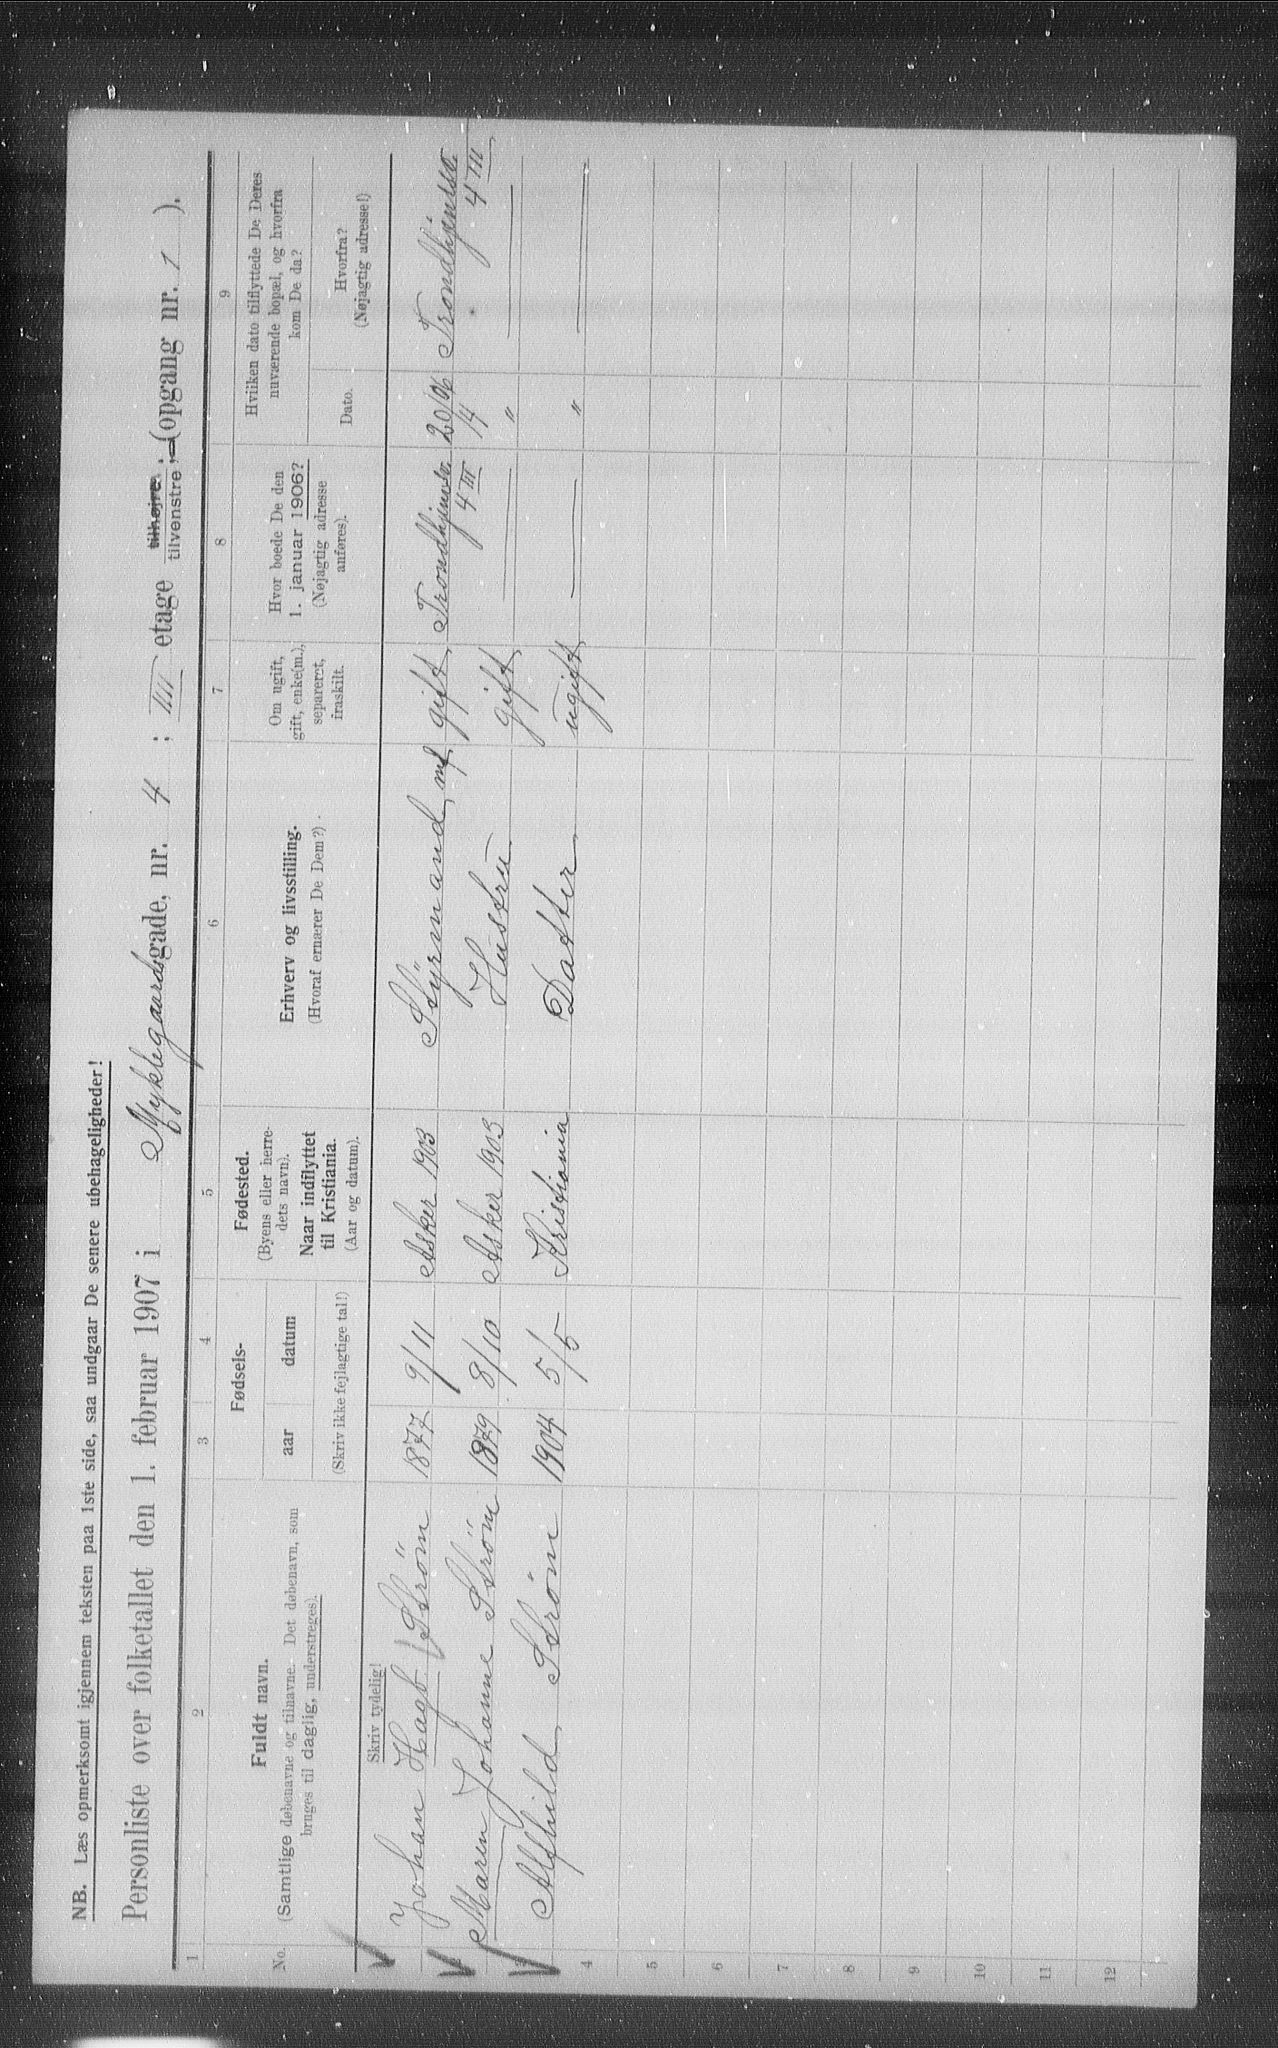 NB. Læs opmerksomt igjennem teksten paa 1ste side, saa undgaar De senere ubehageligheder!
Personliste over folketallet den 1. februar 1907 i Myklegaardsgade, nr. 4 ; III etage tilhøjre ; (opgang nr. 1 ).
tilvenstre
1 2 3 4 5 6 7 8 9
No.
Fuldt navn.
(Samtlige døbenavne og tilnavne. Det døbenavn, som
bruges til daglig, understreges).
Skriv tydelig!
Fødsels-
aar datum
(Skriv ikke fejlagtige tal!)
Fødested.
(Byens eller herre-
dets navn).
Naar indflyttet
til Kristiania.
(Aar og datum).
Erhverv og livsstilling.
(Hvoraf ernærer De Dem?)
Om ugift,
gift, enke(m.),
separeret,
fraskilt.
Hvor boede De den
1. januar 1906?
(Nøjagtig adresse
anføres).
Hviken dato tilflyttede De Deres
nuværende bopæl, og hvorfra
kom De da?
Dato.
Hvorfra?
(Nøjagtig adresse!)
Johan Hagb Ström 1877 9/11 Asker 1903 Styrmand, mf gift Trondhjemsv. 4 III 20/14 06 Trondhjemsv. 4 III
Maren Johanne Ström 1879 8/10 Asker 1903 Hustru gift — " —
Alfhild Strøm 1904 5/5 Kristiania Datter ugift — " —
4
5
6
7
8
9
10
11
12